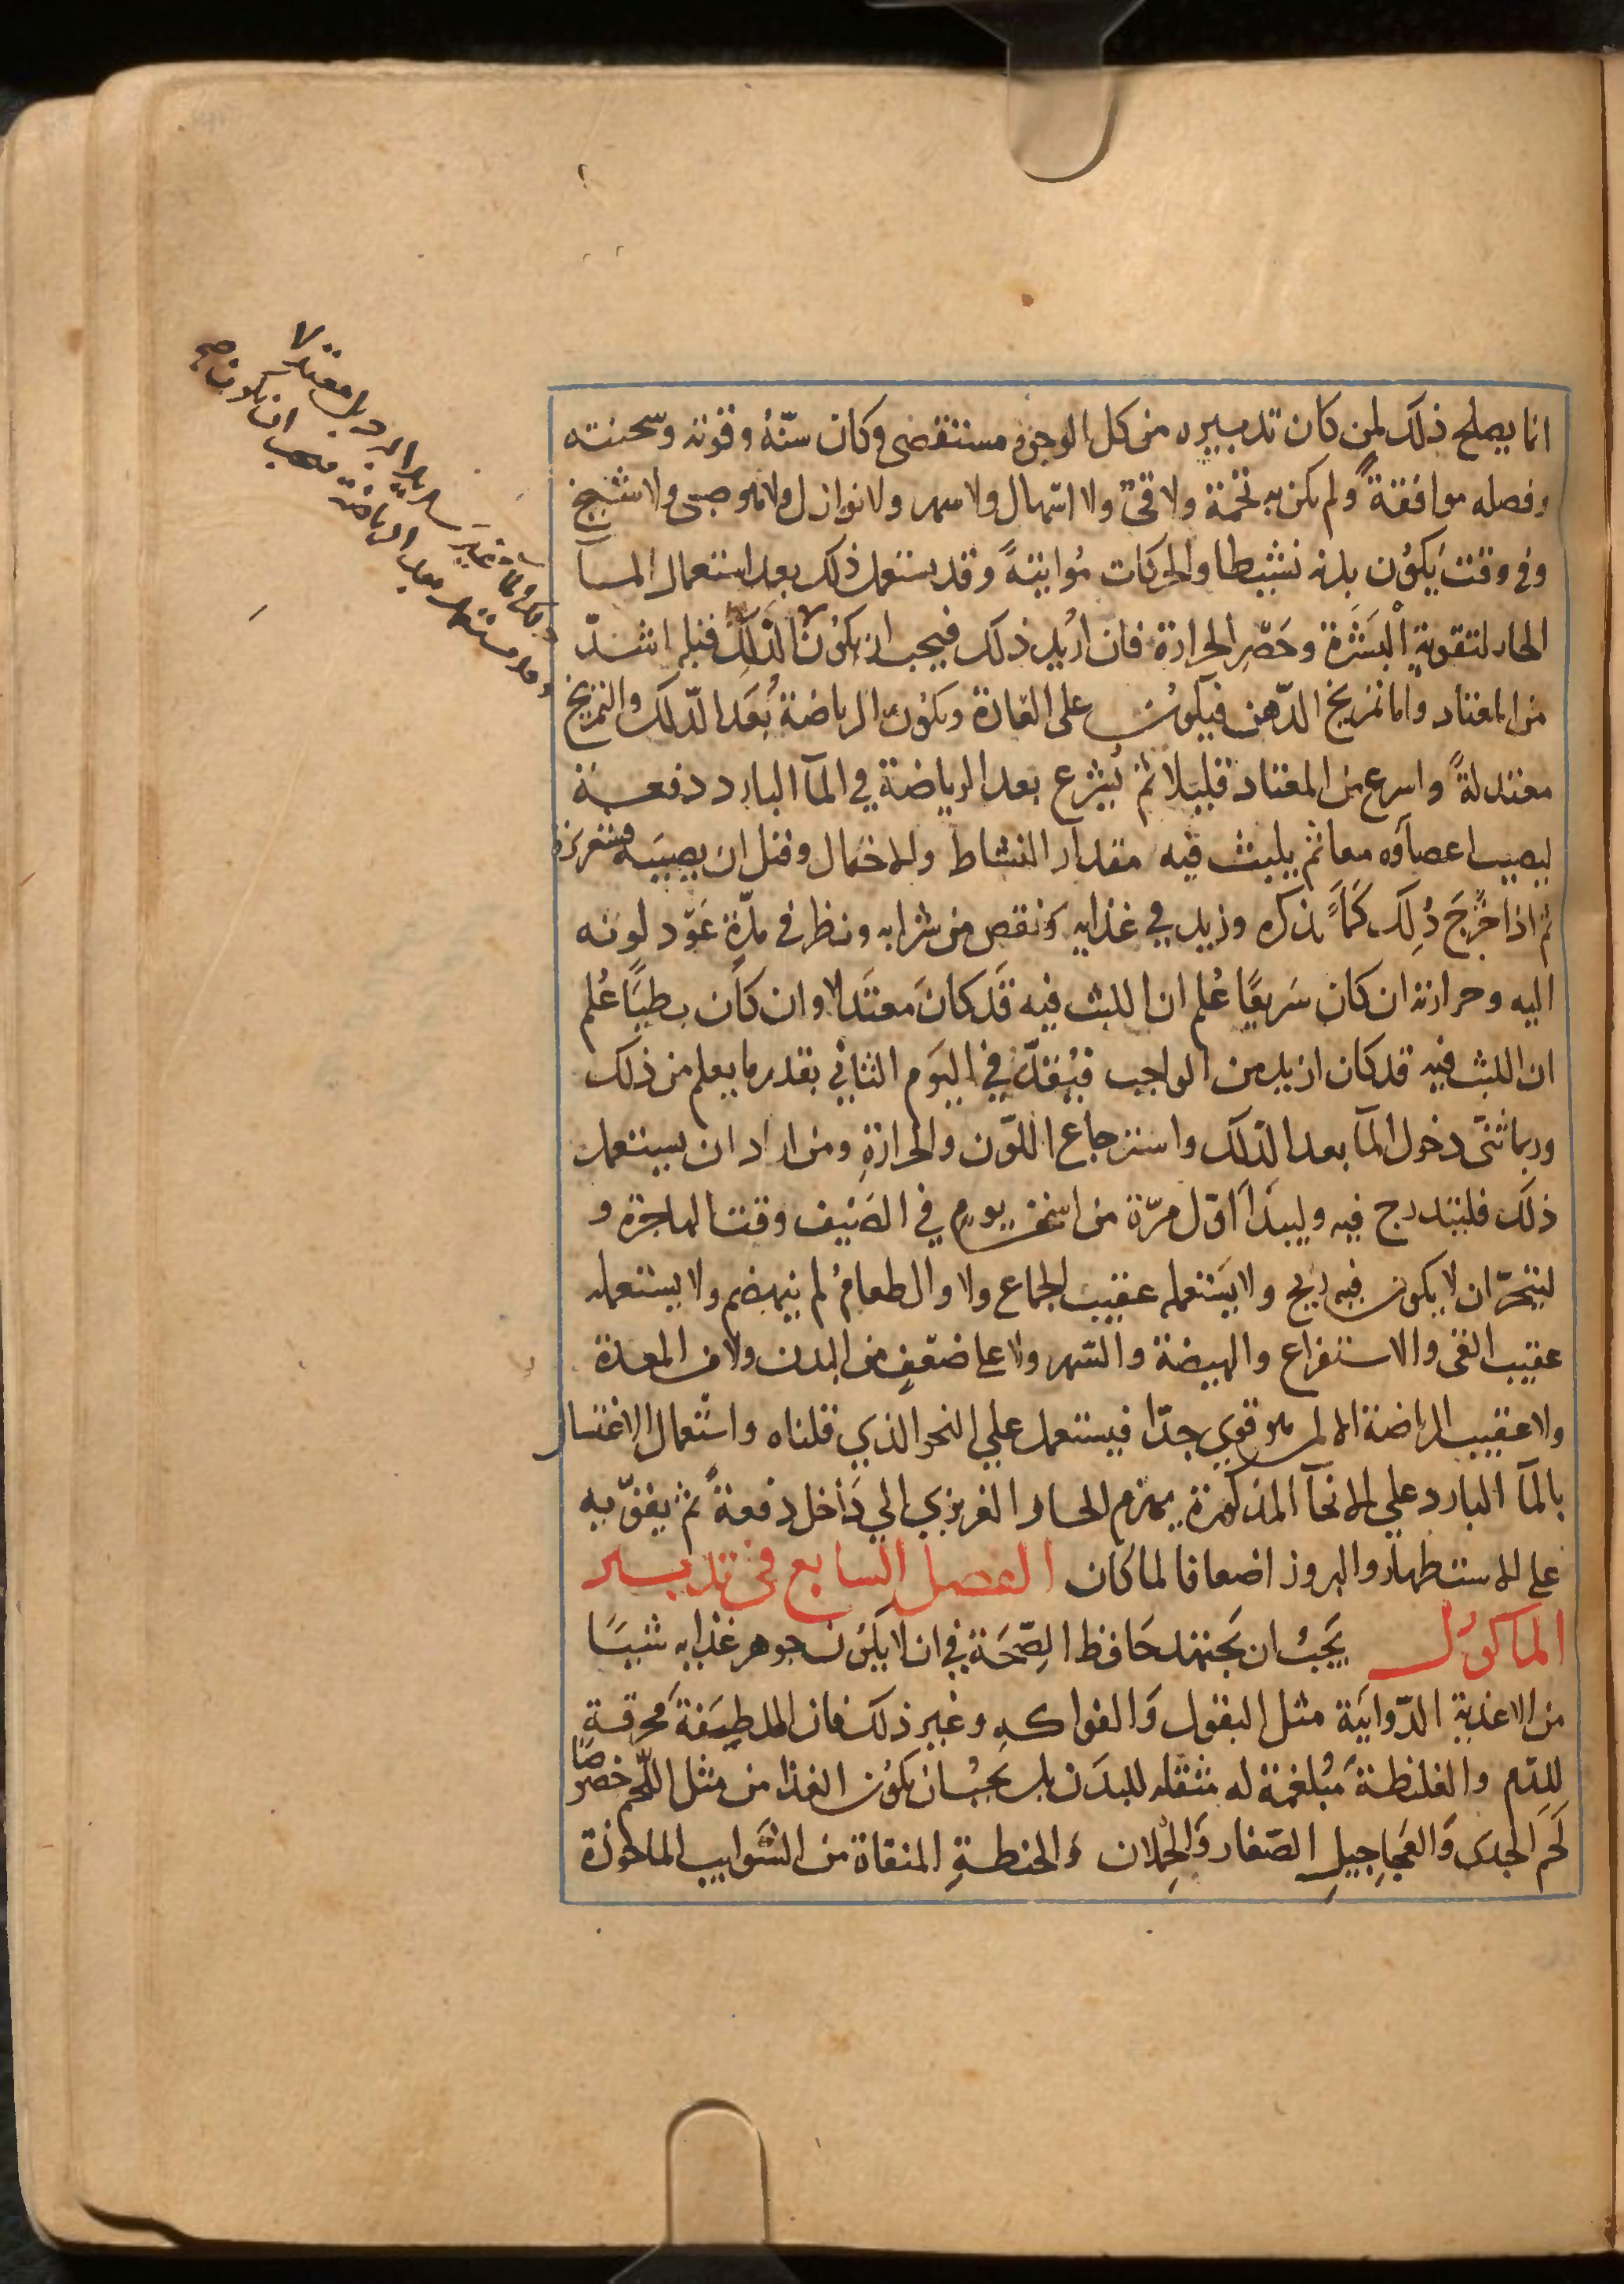 انما يصلح ذلك لمن كان تدبيره من كل الوجوه مستقصى وكان سنّهُ وقوته وسحنته
وفصله موافقةً ولم يكن به تخمة ولا قيّ ولا اسهال ولا سهر ولا نوازل ولا هو صبى ولا شيخ
وفى وقت يَكوُن بدنه نشيطا والحركات مُواتيةً وقد يستعمل ذلك بعد استعمال المآ
الحار لتقويةِ الْبَشَرة وحَصْرِ الحرارة فان اُريد ذلك فيجب ان يكوُن
من المعتاد واما تمريخ الدّهن فيكوُن على العَادة ويكوُن الرياضة بُعَد الدّلك والتمريخ
معتدلةً واسرع من المعتاد قليلا ثم يُشرع بعد الرياضة في المآ البارد دفعة
ليصيب اعضآوه معا ثم يلبث فيه مقدار النشاط والاحتمال وقبل ان يصيبَه قشعريرة
ثم اذا خَرَجَ دُلِك كمَا نذكره وزيد في غذايه ونقص من شرابه ونظر في مدّة عَوْد لونه
اليه وحرارته ان كان سَريعًا عُلم ان اللبث فيه قَد كانَ معتَدلا وان كاَن بطيًا عُلم
ان اللبث فيه قد كان ازيد من الواجب فيُقدّر في اليَوم الثاني بقدر ما يعلم من ذلك
وربما ثنّى دخول المآ بعد الدّلك واسترجاع اللّون والحرارةِ ومن اراد ان يستعمل
ذلك فليتدرج فيه وليبدَأ اوّل مرّة من اسخن يومٍ في الصَيف وقت الهاجرة و
ليتحرّ ان لا يكون فيه ريح ولا يَستعمله عقيب الجماع ولا والطعامُ لم ينهضم ولا يستعمله
عقيب القى والاستفراغ والهيضة والسّهر ولا على ضعفٍ من البدن ولا من المعدة
ولا عقيب الرياضة الا لمن هو قوي جدّا فيستعمل علي النحو الذي قلناه واستعمال الاغتسال
بالمآ البارد علي الانحآ المذكورة يهزم الحار الغريزي الي دَاخل دفعةً ثم يقوّيه
على الاستظهار والبروز اضعافا لما كان الفصل السابع فى تدبير
الماكوُل يَجبُ ان يَجتهد حَافظ الصِّحَة في ان لا يَكوُن جوهر غذايه شيًا
من الاغذية الدّوايَة مثل البقول وَالفواكهِ وغير ذلك فان الملطِفَة محرقة
للدّم والغليظة مُبلغمة له مثقله للبدَن بل يجبُ ان يكوُن الغذا من مثل اللّحم خصوصًا
لَحم الجدى وَالعَجاجيلِ الصّغار وَالحُملان وَالحنطةِ المنقاة من الشَوايب الماخوذة